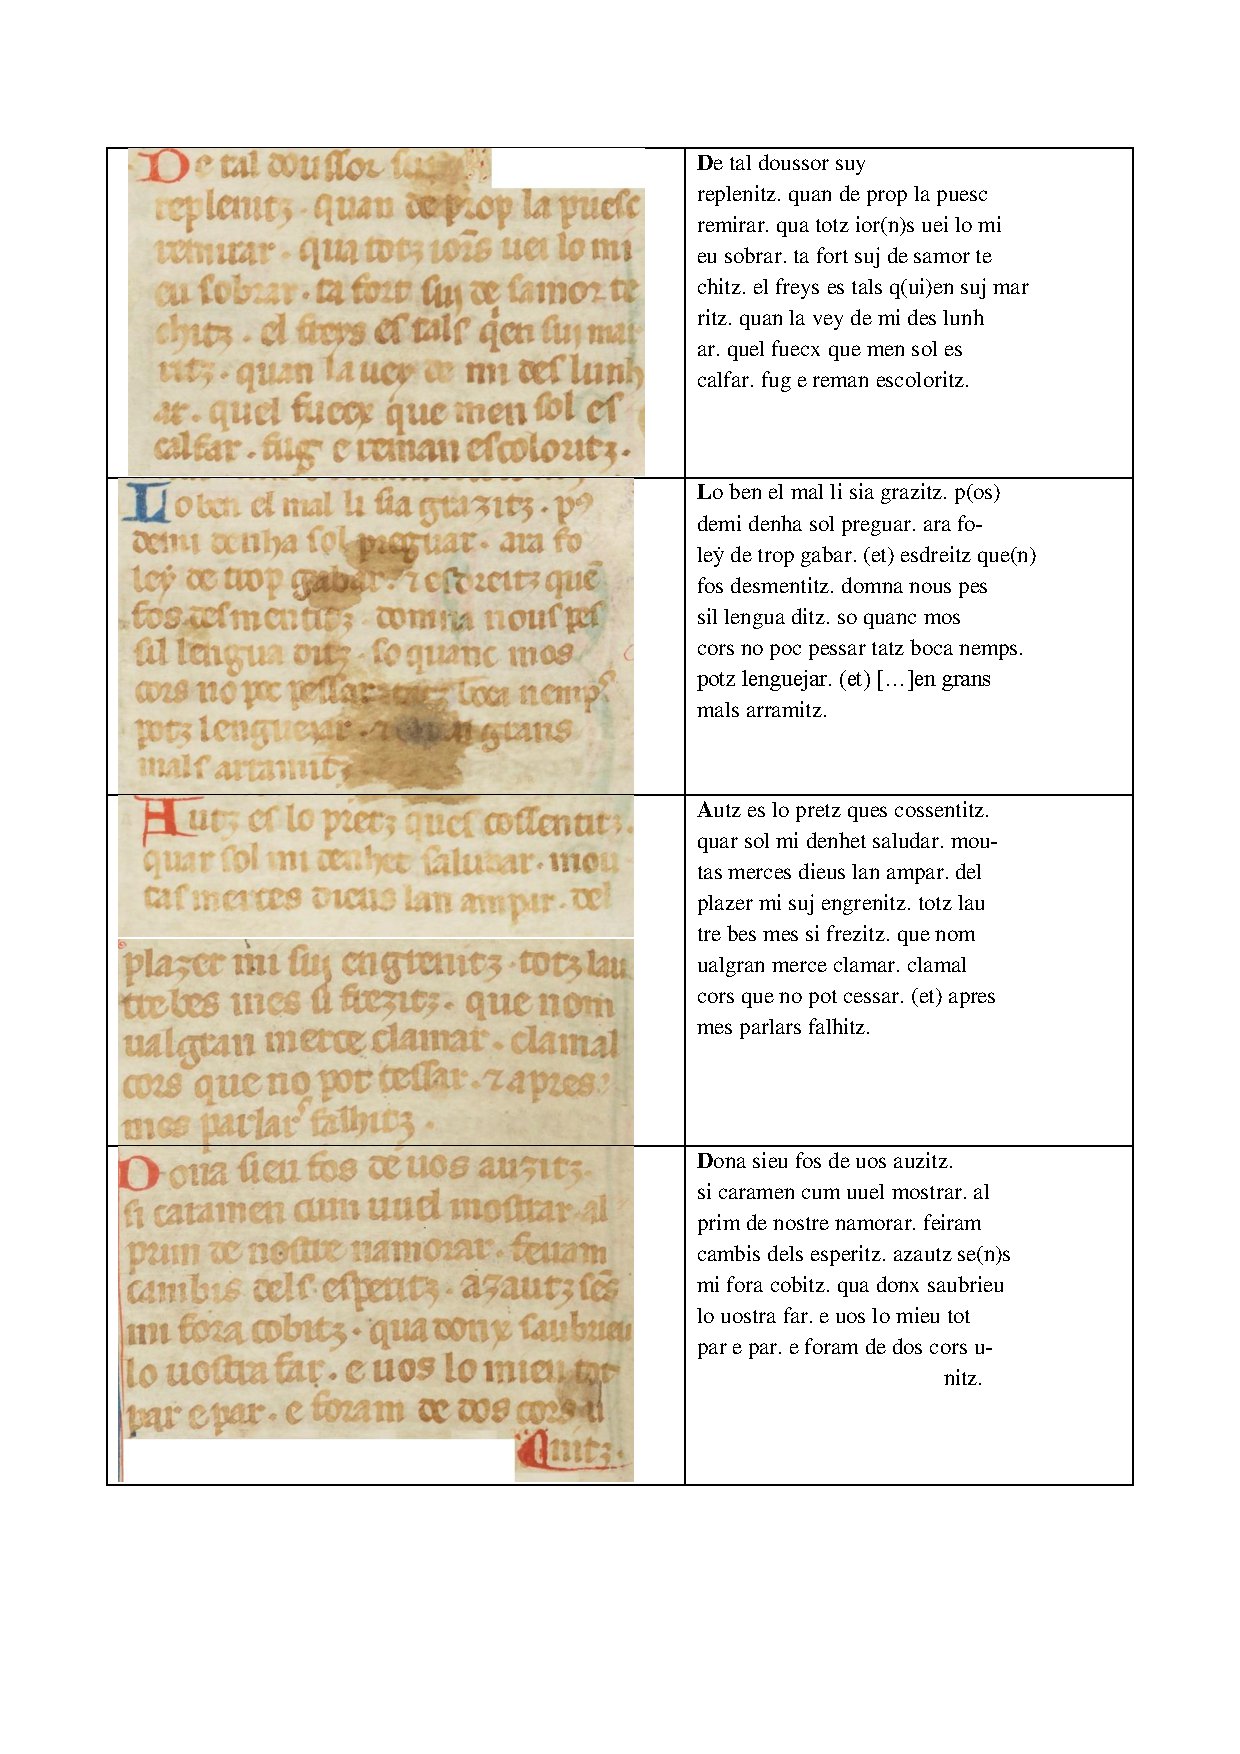 De tal doussor suy
replenitz. quan de prop la puesc
remirar. qua totz iorñs uei lo mi
eu sobrar. ta fort suj de samor te
chitz. el freys es tals q̇en suj mar
ritz. quan la uey de mi des lunh
ar. quel fuecx que men sol es
calfar. fug e reman escoloritz.
De tal doussor suy
replenitz. quan de prop la puesc
remirar. qua totz ior(n)s uei lo mi
eu sobrar. ta fort suj de samor te
chitz. el freys es tals q(ui)en suj mar
ritz. quan la vey de mi des lunh
ar. quel fuecx que men sol es
calfar. fug e reman escoloritz.
Lo ben el mal li sia grazitz. pꝰ
demi denha sol preguar. ara fo
leẏ de trop gabar. ⁊ esdreitz quē
fos desmentitz. domna nous pes
sil lengua ditz. so quanc mos
cors no poc pessar tatz boca nemps.
potz lenguejar. ⁊ en grans
mals arramitz
Lo ben el mal li sia grazitz. p(os)
demi denha sol preguar. ara fo-
leẏ de trop gabar. (et) esdreitz que(n)
fos desmentitz. domna nous pes
sil lengua ditz. so quanc mos
cors no poc pessar tatz boca nemps.
potz lenguejar. (et) […]en grans
mals arramitz.
Autz es lo pretz ques cossentitz.
quar sol mi denhet saludar. mou
tas merces dieus lan ampar. del
plazer mi suj engrenitz. totz lau
tre bes mes si frezitz. que nom
ualgran merce clamar. clamal
cors que no pot cessar. ⁊ apres
mes parlars falhitz.
Autz es lo pretz ques cossentitz.
quar sol mi denhet saludar. mou-
tas merces dieus lan ampar. del
plazer mi suj engrenitz. totz lau
tre bes mes si frezitz. que nom
ualgran merce clamar. clamal
cors que no pot cessar. (et) apres
mes parlars falhitz.
Dona sieu fos de uos auzitz.
si caramen cum uuel mostrar. al
prim de nostre namorar. feiram
cambis dels esperitz. azautz sēs
mi fora cobitz. qua donx saubrieu
lo uostra far. e uos lo mieu tot
par e par. e foram de dos cors u
nitz.
Dona sieu fos de uos auzitz.
si caramen cum uuel mostrar. al
prim de nostre namorar. feiram
cambis dels esperitz. azautz se(n)s
mi fora cobitz. qua donx saubrieu
lo uostra far. e uos lo mieu tot
par e par. e foram de dos cors u-
nitz.